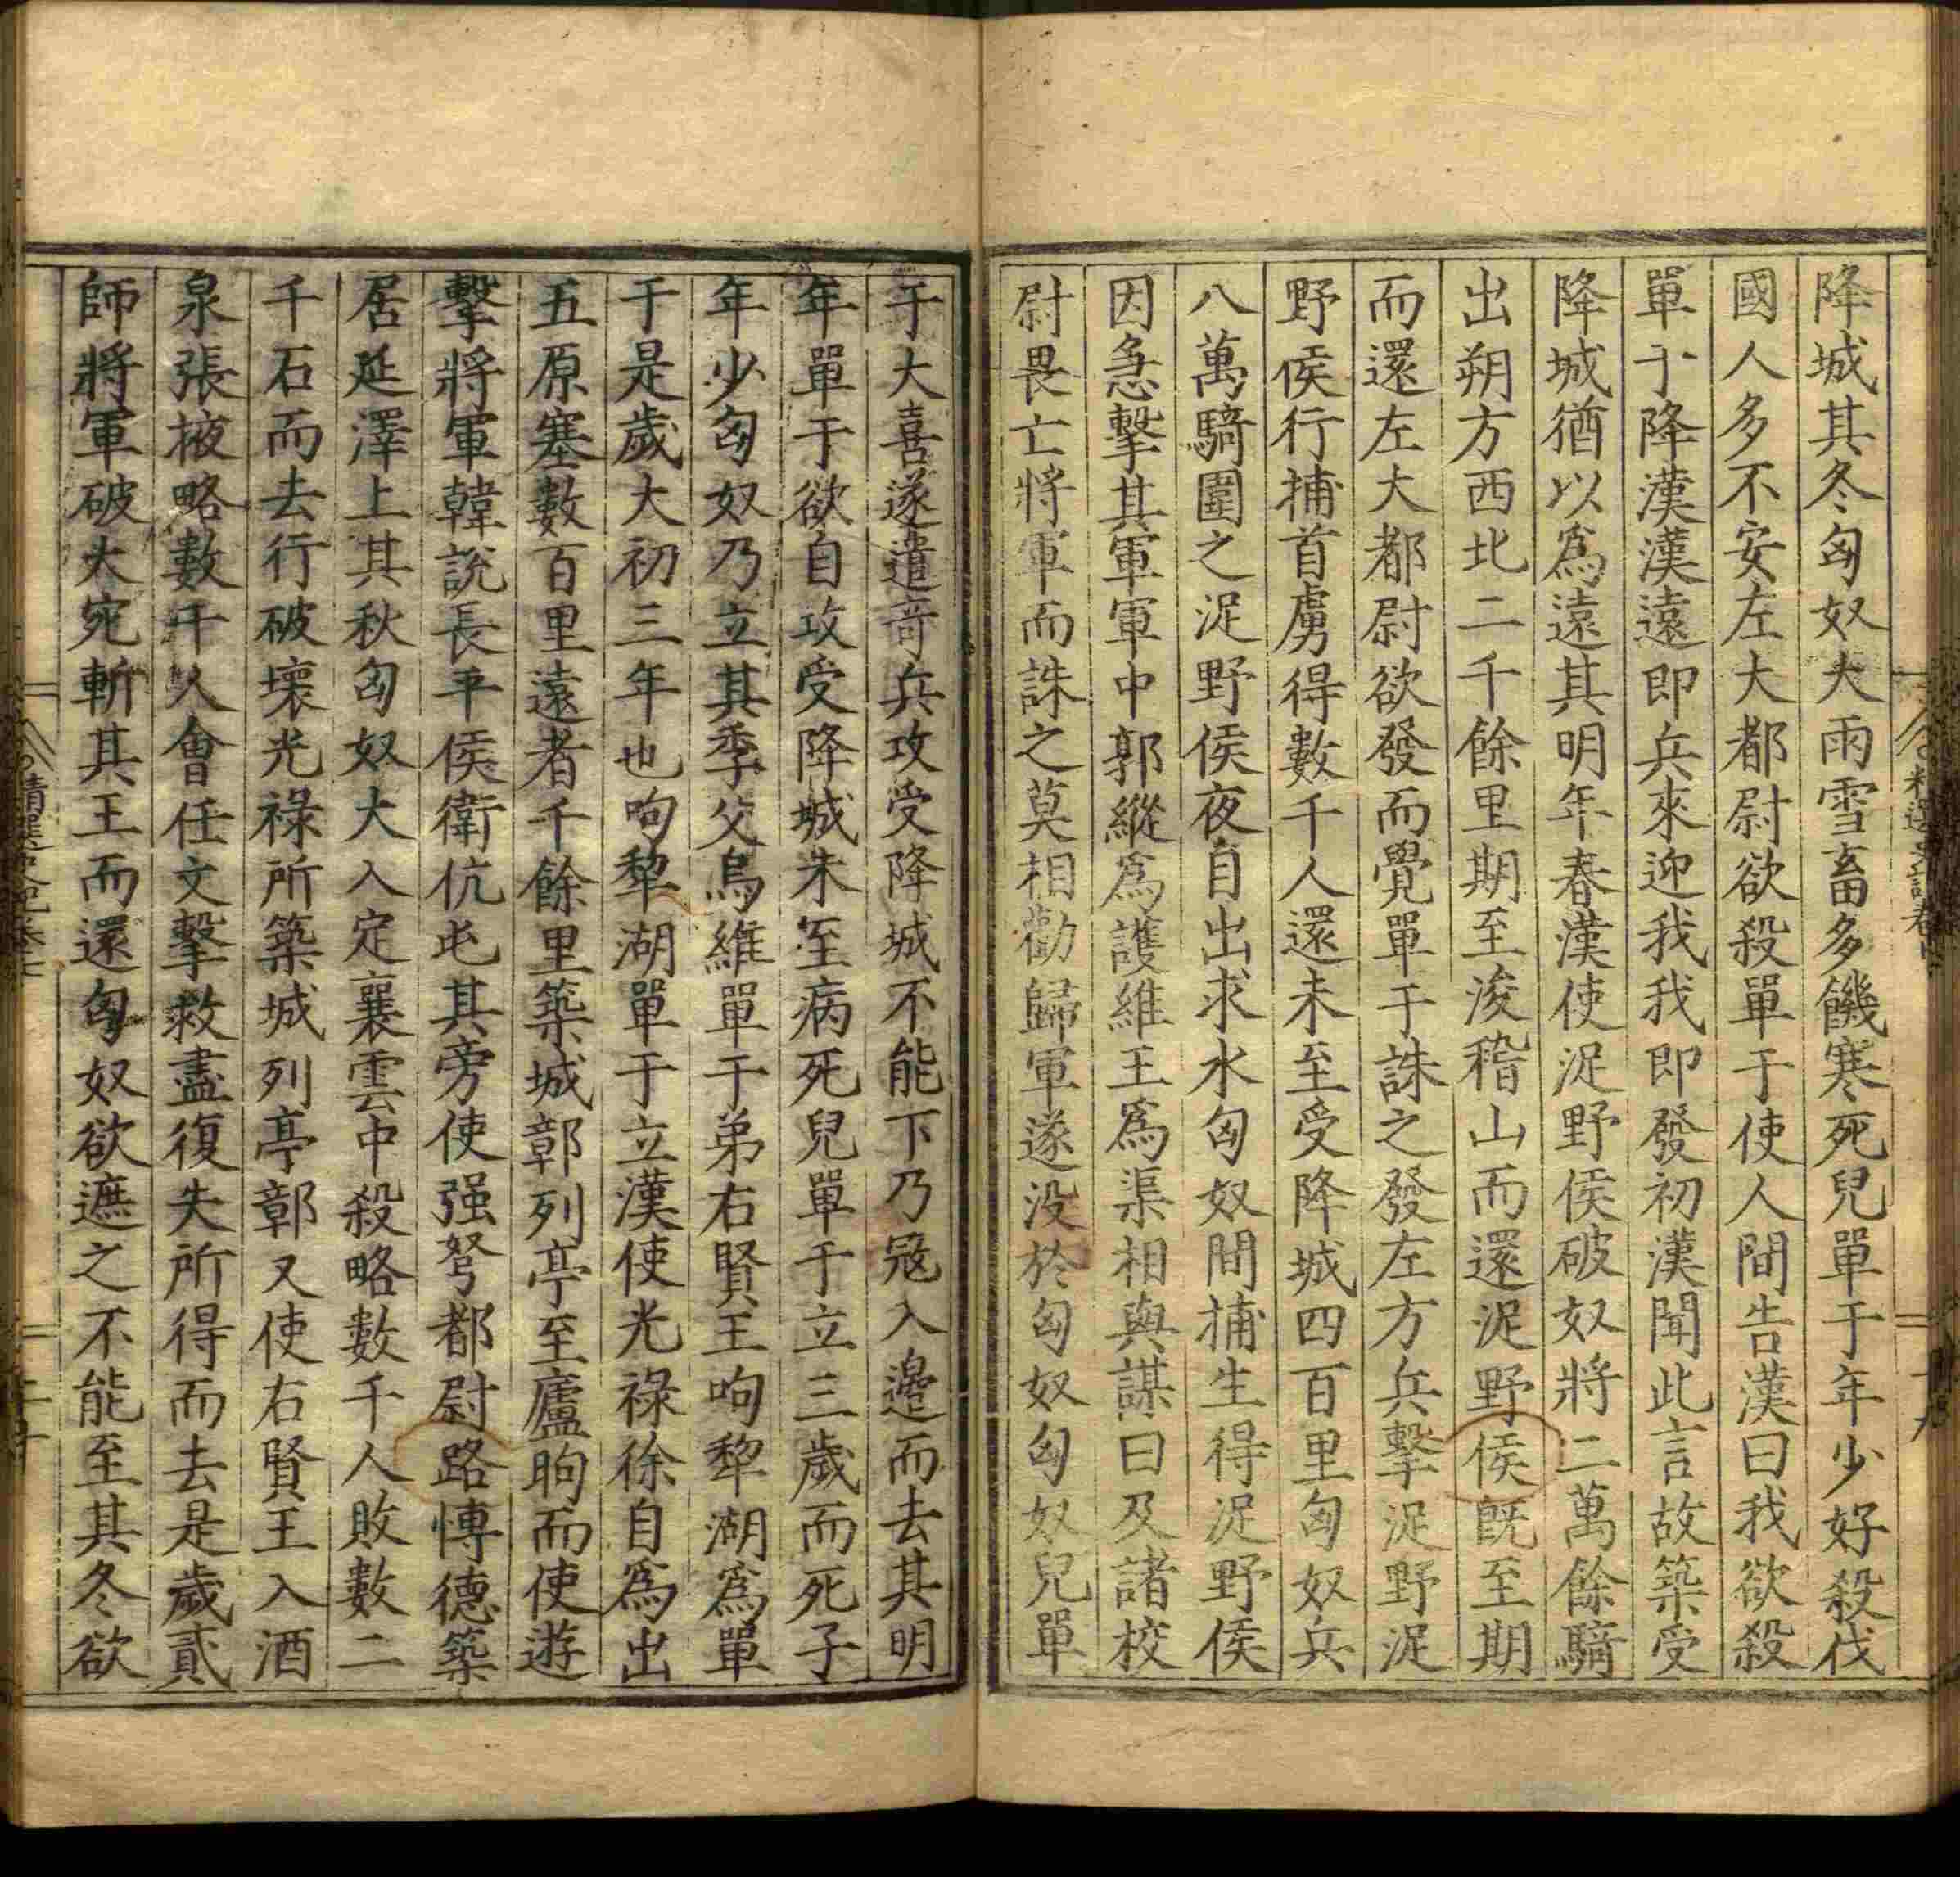 降城其冬匈奴大雨雪畜多饑寒死兒單于年少好殺伐
國人多不安左大都尉欲殺單于使人間告漢曰我欲殺
單于降漢漢遠即兵來迎我我即發初漢聞此言故築受
降城猶以爲遠其明年春漢使浞野侯破奴將二萬餘騎
出朔方西北二千餘里期至浚稽山而還浞野侯旣至期
而還左大都尉欲發而覺單于誅之發左方兵擊浞野浞
野侯行捕首虜得數千人還未至受降城四百里匈奴兵
八萬騎圍之浞野侯夜自出求水匈奴間捕生得浞野侯
因急擊其軍軍中郭縱爲護維王爲渠相與謀曰及諸校
尉畏亡將軍而誅之莫相勸歸軍遂没於匈奴匈奴兒單
于大喜遂遣奇兵攻受降城不能下乃冦入邊而去其明
年單于欲自攻受降城未至病死兒單于立三歲而死子
年少匈奴乃立其季父烏維單于弟右賢王呴犂湖爲單
于是歲太初三年也呴犂湖單于立漢使光禄徐自爲出
五原塞數百里遠者千餘里築城鄣列亭至廬朐而使遊
擊將軍韓說長平侯衛伉屯其旁使强弩都尉路愽德築
居延澤上其秋匈奴大入定襄雲中殺略數千人敗數二
千石而去行破壞光禄所築城列亭鄣又使右賢王入酒
泉張掖略數千人會任文擊救盡復失所得而去是歲貳
師將軍破大宛斬其王而還匈奴欲遮之不能至其冬欲